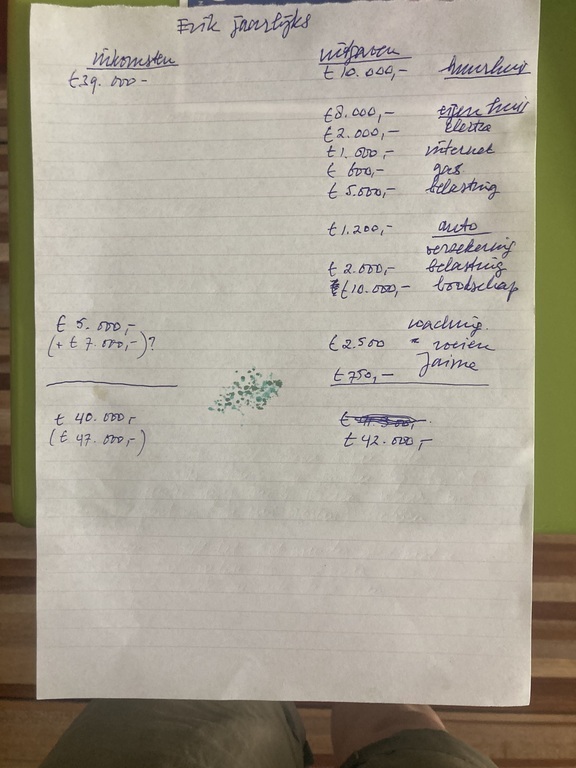 Erik jaarlijks
inkomsten uitgaven
€39.000- €10.000,- huurhuis
€8.000,- eigen huis
€2.000,- Elektra
€1.000,- internet
€ 600,- gas
€ 5.000,- belasting
€1.200,- auto
verzekering
€2.000,- belasting
€10.000,- boodschap
€ 5.000,- coaching
(+ € 7.000,-)? €2.500 roeien
€750,- Jaime
€ 40.000,-
(€ 47.000,-) € 42.000,-